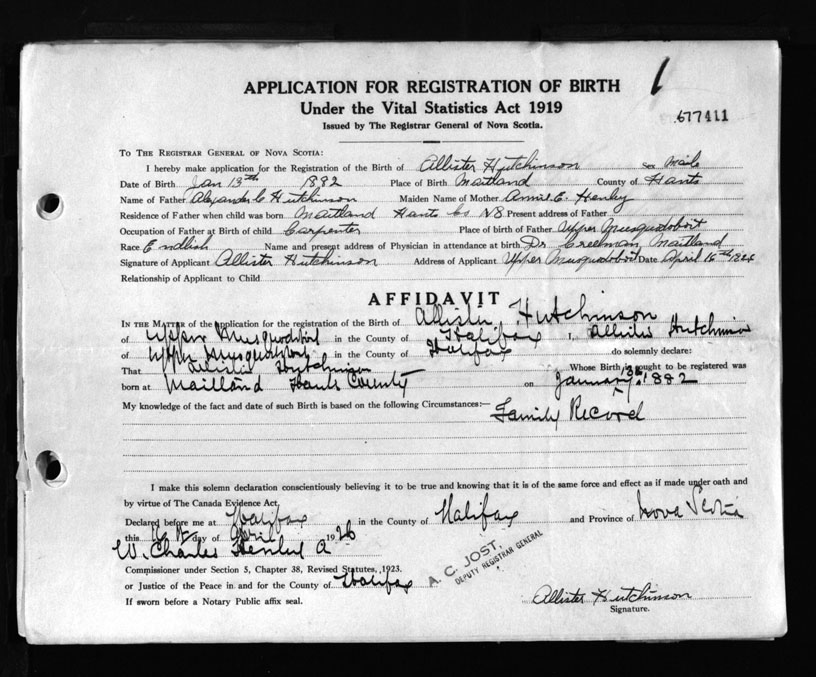 1
APPLICATION FOR REGISTRATION OF BIRTH
Under the Vital Statistics Act 1919
677411
Issued by The Registrar General of Nova Scotia.
TO THE REGISTRAR GENERAL OF NOVA SCOTIA:
I hereby make application for the Registration of the Birth of Allister Hutchinson Sex Male
Date of Birth Jan 13th 1882 Place of Birth Maitland County of Hants
Name of Father Alexander C Hutchinson Maiden Name of Mother Annie E. Henry
Residence of Father when child was born Maitland Hants Co NS Present address of Father
Occupation of Father at Birth of child Carpenter Place of birth of Father Upper Musquodoboit
Race English Name and present address of Physician in attendance at birth Dr Creelman, Maitland
Signature of Applicant Allister Hutchinson Address of Applicant Upper Musquodoboit Date April 16th 1926
Relationship of Applicant to Child
AFFIDAVIT
IN THE MATTER of the application for the registration of the Birth of Allister Hutchinson
of Upper Musquodoboit in the County of Halifax I, Allister Hutchinson
of Upper Musquodoboit in the County of Halifax do solemnly declare:
That Allister Hutchinson Whose Birth is sought to be registered was
born at Maitland Hants County on January 13th 1882
My knowledge of the fact and date of such Birth is based on the following Circumstances:— Family Record
I make this solemn declaration conscientiously believing it to be true and knowing that it is of the same force and effect as if made under oath and
by virtue of The Canada Evidence Act.
Declared before me at Halifax in the County of Halifax and Province of Nova Scotia
this day of April 1926
W. Charles
Commissioner under Section 5, Chapter 38, Revised Statutes, 1923.
or Justice of the Peace in and for the County of Halifax
If sworn before a Notary Public affix seal.
A. C. JOST,
DEPUTY REGISTRAR GENERAL
Allister Hutchinson
Signature.